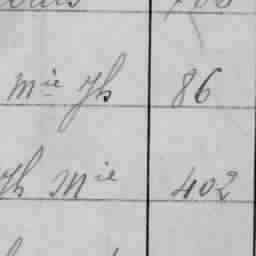 mie Jh 86
Jh mie 402